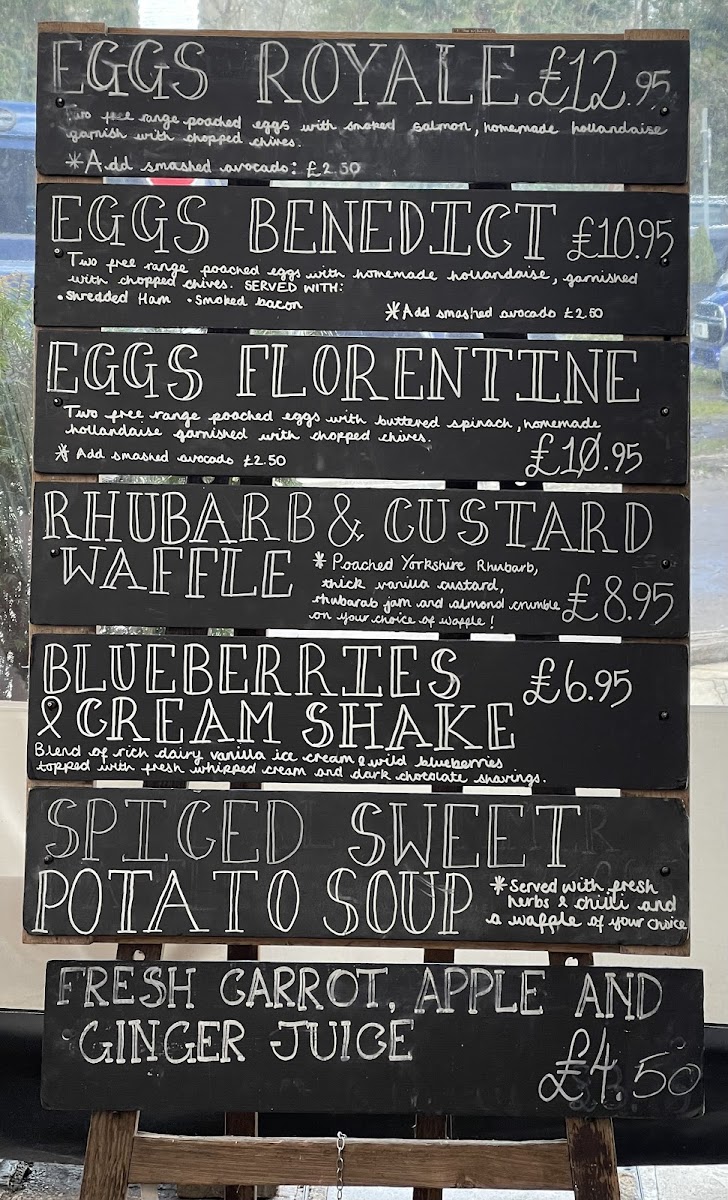 EGGS ROYALE £12.95
Two free range poached eggs with smoked salmon, homemade hollandaise
garnish with chopped chives.
*Add smashed avocado: £2.50
EGGS BENEDICT £10.95
Two free range poached eggs with homemade hollandaise, garnished
with chopped chives. SERVED WITH:
• shredded Ham • Smoked bacon
*Add smashed avocado £2.50
EGGS FLORENTINE
Two free range poached eggs with buttered spinach, homemade
hollandaise garnished with chopped chives.
* Add smashed avocado £2.50
£10.95
RHUBARB & CUSTARD
WAFFLE
* Poached Yorkshire Rhubarb,
thick vanilla custard,
rhubarb jam and almond crumble
on your choice of waffle!
£8.95
BLUEBERRIES £6.95
& CREAM SHAKE
Blend of rich dairy vanilla ice cream & wild blueberries
topped with fresh whipped cream and dark chocolate shavings.
SPICED SWEET
POTATO SOUP
*Served with fresh
herbs & chilli and
a waffle of your choice
FRESH CARROT, APPLE AND
GINGER JUICE
£4.50